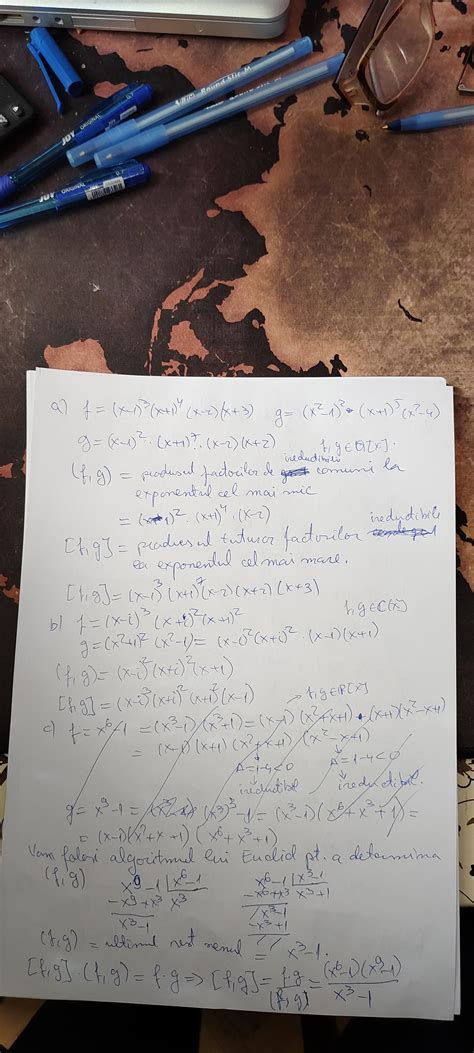 JOY
0.7
JOY
0.7
a) f = (x-1)³(x+1)⁴(x-2)(x+3) g = (x²-1)²·(x+1)⁵(x²-4)
g = (x-1)²·(x+1)⁷·(x-2)(x+2) f,g∈Q[x].
(f,g) = produsul factorilor de ireductibili comuni la
exponentul cel mai mic
= (x-1)²·(x+1)⁴·(x-2)
[f,g] = produsul tuturor factorilor ireductibili
la exponentul cel mai mare.
[f,g] = (x-1)³(x+1)⁷(x-2)(x+2)(x+3)
b) f = (x-i)³(x+i)²(x+1)² f,g∈C[x]
g = (x²+1)²(x²-1) = (x-i)²(x+i)²·(x-1)(x+1)
(f,g) = (x-i)²(x+i)²(x+1)
[f,g] = (x-i)³(x+i)²(x+1)²(x-1)
→ f,g∈R[x]
c) f = x⁶-1 = (x³-1)(x³+1) = (x-1)(x²+x+1)·(x+1)(x²-x+1)
= (x-1)(x+1)(x²+x+1)(x²-x+1)
Δ=1-4<0 Δ=1-4<0
ireductibil ireductibil.
g = x⁹-1 = (x³)³-1 = (x³-1)(x⁶+x³+1) =
= (x-1)(x²+x+1)(x⁶+x³+1)
Vom folosi algoritmul lui Euclid pt. a determina
(f,g) x⁹-1 | x⁶-1 x⁶-1 | x³-1
-x⁹+x³ | x³ -x⁶+x³ | x³+1
x³-1 x³-1
-x³+1
(f,g) = ultimul rest nenul = x³-1.
[f,g]·(f,g) = f·g ⇒ [f,g] = f·g/(f,g) = (x⁶-1)(x⁹-1)/x³-1